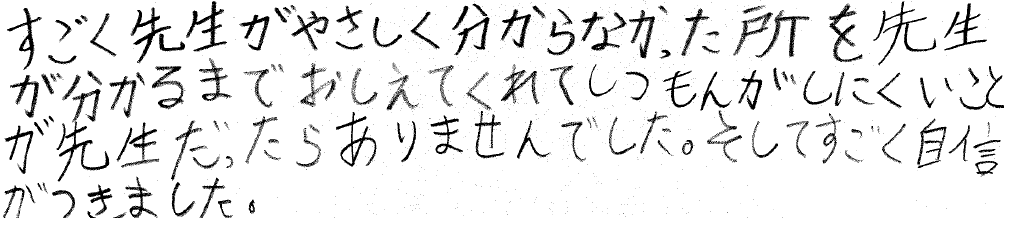 すごく先生がやさしく分からなかった所を先生
が分かるまでおしえてくれてしつもんがしにくいこと
が先生だったらありませんでした。そしてすごく自信
がつきました。